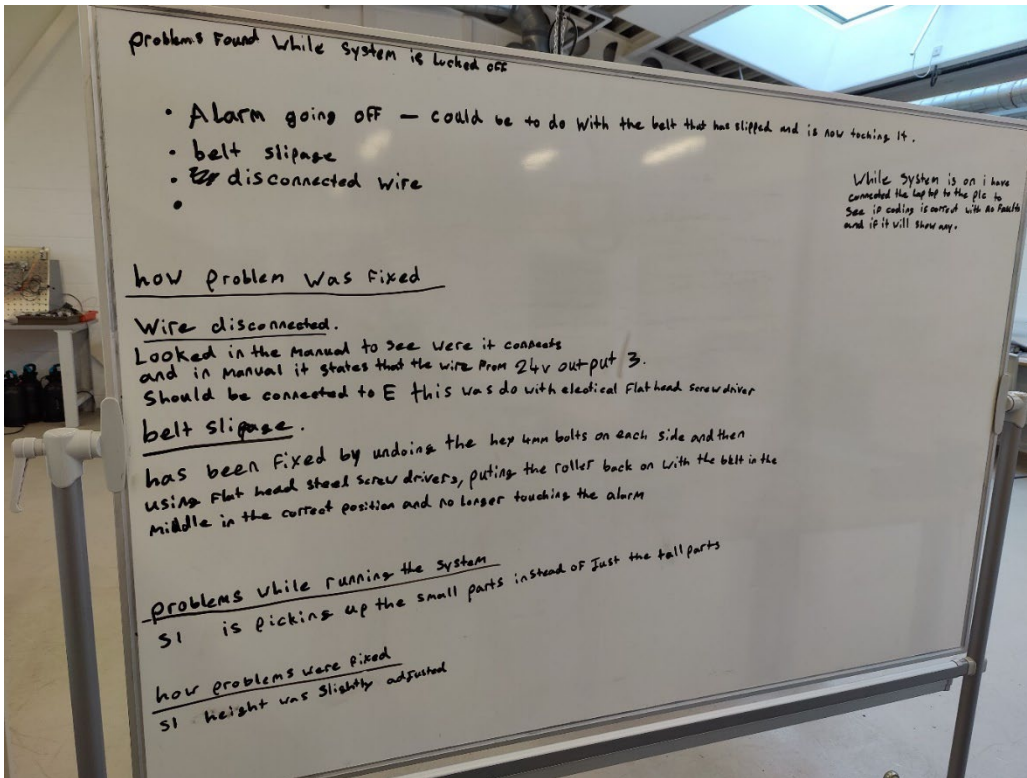 problems Found While System is locked off
• Alarm going off — could be to do With the belt that has slipped and is now toching it.
• belt slipage
• disconnected wire
•
While System is on i have
connected the laptop to the plc to
See if coding is correct with no Faults
and if it will show any.
how problem was fixed
Wire disconnected.
Looked in the manual to see were it connects
and in manual it states that the wire from 24v output 3.
Should be connected to E this was do with electical Flat head screwdriver
belt slipage.
has been fixed by undoing the hex 4mm bolts on each side and then
using Flat head steel screw drivers, puting the roller back on with the belt in the
middle in the correct position and no longer touching the alarm
problems while running the system
S1 is picking up the small parts instead of Just the tall parts
how problems were fixed
S1 height was slightly adjusted